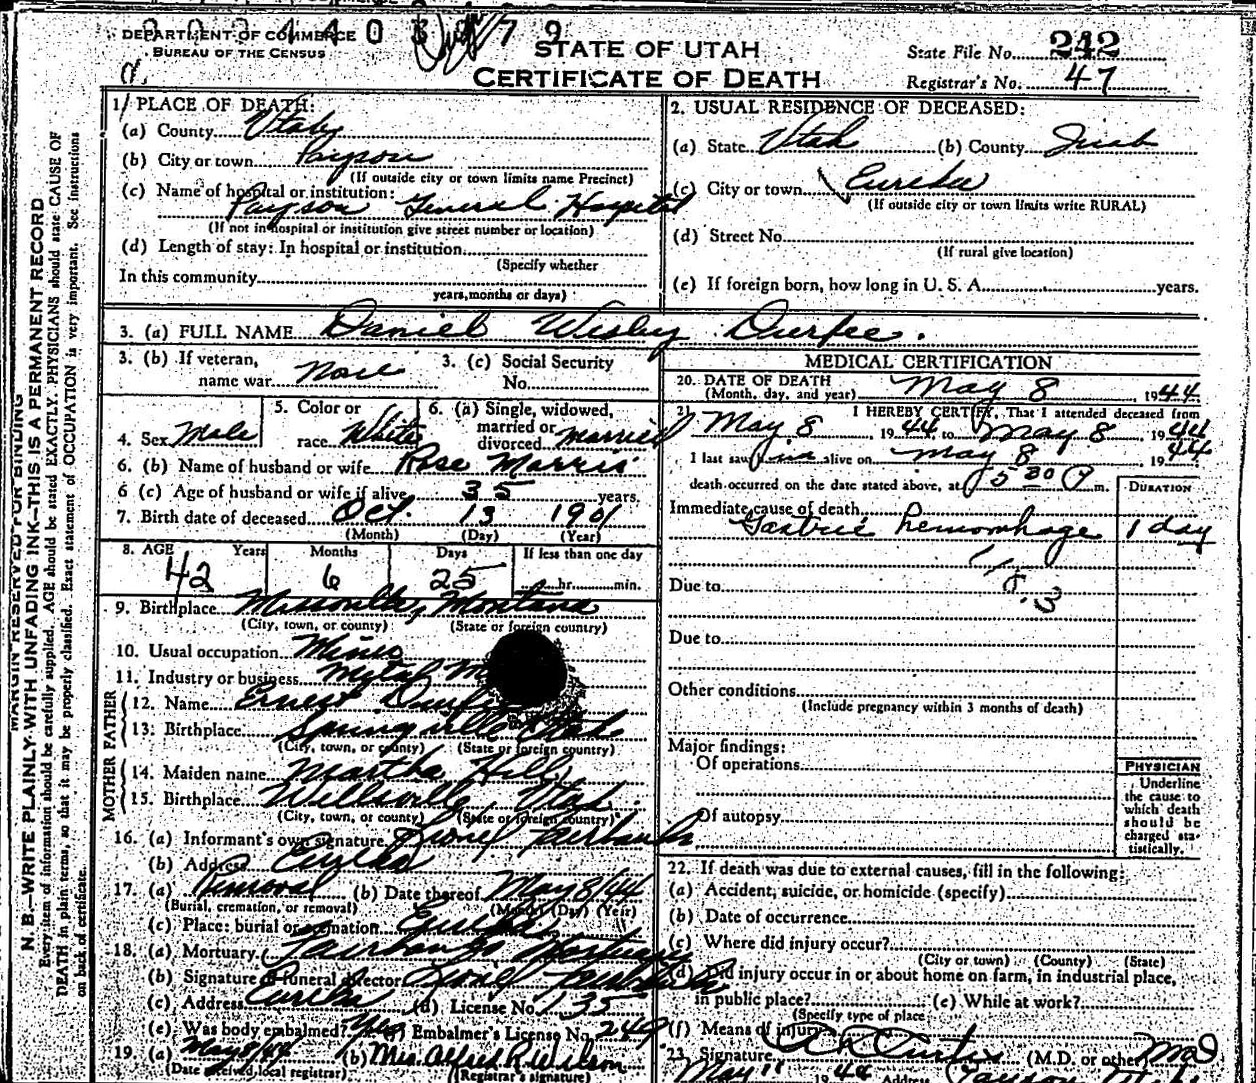 DEPARTMENT OF COMMERCE
BUREAU OF THE CENSUS
STATE OF UTAH
CERTIFICATE OF DEATH
State File No. 242
Registrar's No. 47
MARGIN RESERVED FOR BINDING
N. B.—WRITE PLAINLY WITH UNFADING INK—THIS IS A PERMANENT RECORD
Every item of information should be carefully supplied. AGE should be stated EXACTLY. PHYSICIANS should state CAUSE OF
DEATH in plain terms, so that it may be properly classified. Exact statement of OCCUPATION is very important. See instructions
on back of certificate.
1. PLACE OF DEATH:
(a) County Utah
(b) City or town Payson
(If outside city or town limits name Precinct)
(c) Name of hospital or institution:
Payson General Hospital
(If not in hospital or institution give street number or location)
(d) Length of stay: In hospital or institution
(Specify whether
In this community
years, months or days)
2. USUAL RESIDENCE OF DECEASED:
(a) State Utah (b) County Juab
(c) City or town Eureka
(If outside city or town limits write RURAL)
(d) Street No.
(If rural give location)
(e) If foreign born, how long in U. S. A. years.
3. (a) FULL NAME Daniel Wesley Durfee.
3. (b) If veteran, name war None
3. (c) Social Security No.
4. Sex Male
5. Color or race White
6. (a) Single, widowed, married or divorced married
6. (b) Name of husband or wife Rose Morris
6 (c) Age of husband or wife if alive 35 years.
7. Birth date of deceased Oct. 13 1901
(Month) (Day) (Year)
8. AGE Years Months Days If less than one day
42 6 25 hr. min.
9. Birthplace Missoula, Montana
(City, town, or county) (State or foreign country)
10. Usual occupation Miner
11. Industry or business Metal
FATHER
12. Name Ernest Durfee
13. Birthplace Springville Utah
(City, town, or county) (State or foreign country)
MOTHER
14. Maiden name Martha Hill
15. Birthplace Wellsville, Utah.
(City, town, or county) (State or foreign country)
16. (a) Informant's own signature Lionel Fairbanks
(b) Address Eureka
17. (a) Removal (b) Date thereof May 8/44
(Burial, cremation, or removal) (Month) (Day) (Year)
(c) Place: burial or cremation Eureka
18. (a) Mortuary Fairbanks Mortuary
(b) Signature of funeral director Lionel Fairbanks
(c) Address Eureka (d) License No. 135
(e) Was body embalmed? Yes Embalmer's License No. 249
19. (a) May 8/44 (b) Mrs. Alfred R. Wilson
(Date received local registrar) (Registrar's signature)
MEDICAL CERTIFICATION
20. DATE OF DEATH May 8, 1944
(Month, day, and year)
21. I HEREBY CERTIFY, That I attended deceased from
May 8 1944, to May 8, 1944
I last saw him alive on May 8 1944
death occurred on the date stated above, at 5 30 P m.
DURATION
Immediate cause of death
Gastric hemorrhage 1 day
Due to
Due to
Other conditions
(Include pregnancy within 3 months of death)
Major findings:
Of operations
Of autopsy
PHYSICIAN
Underline
the cause to
which death
should be
charged sta-
tistically.
22. If death was due to external causes, fill in the following:
(a) Accident, suicide, or homicide (specify)
(b) Date of occurrence
(c) Where did injury occur?
(City or town) (County) (State)
(d) Did injury occur in or about home on farm, in industrial place,
in public place? (e) While at work?
(Specify type of place)
(f) Means of injury
23. Signature Curtis (M.D. or other) MD
May 11 1944 Address Payson